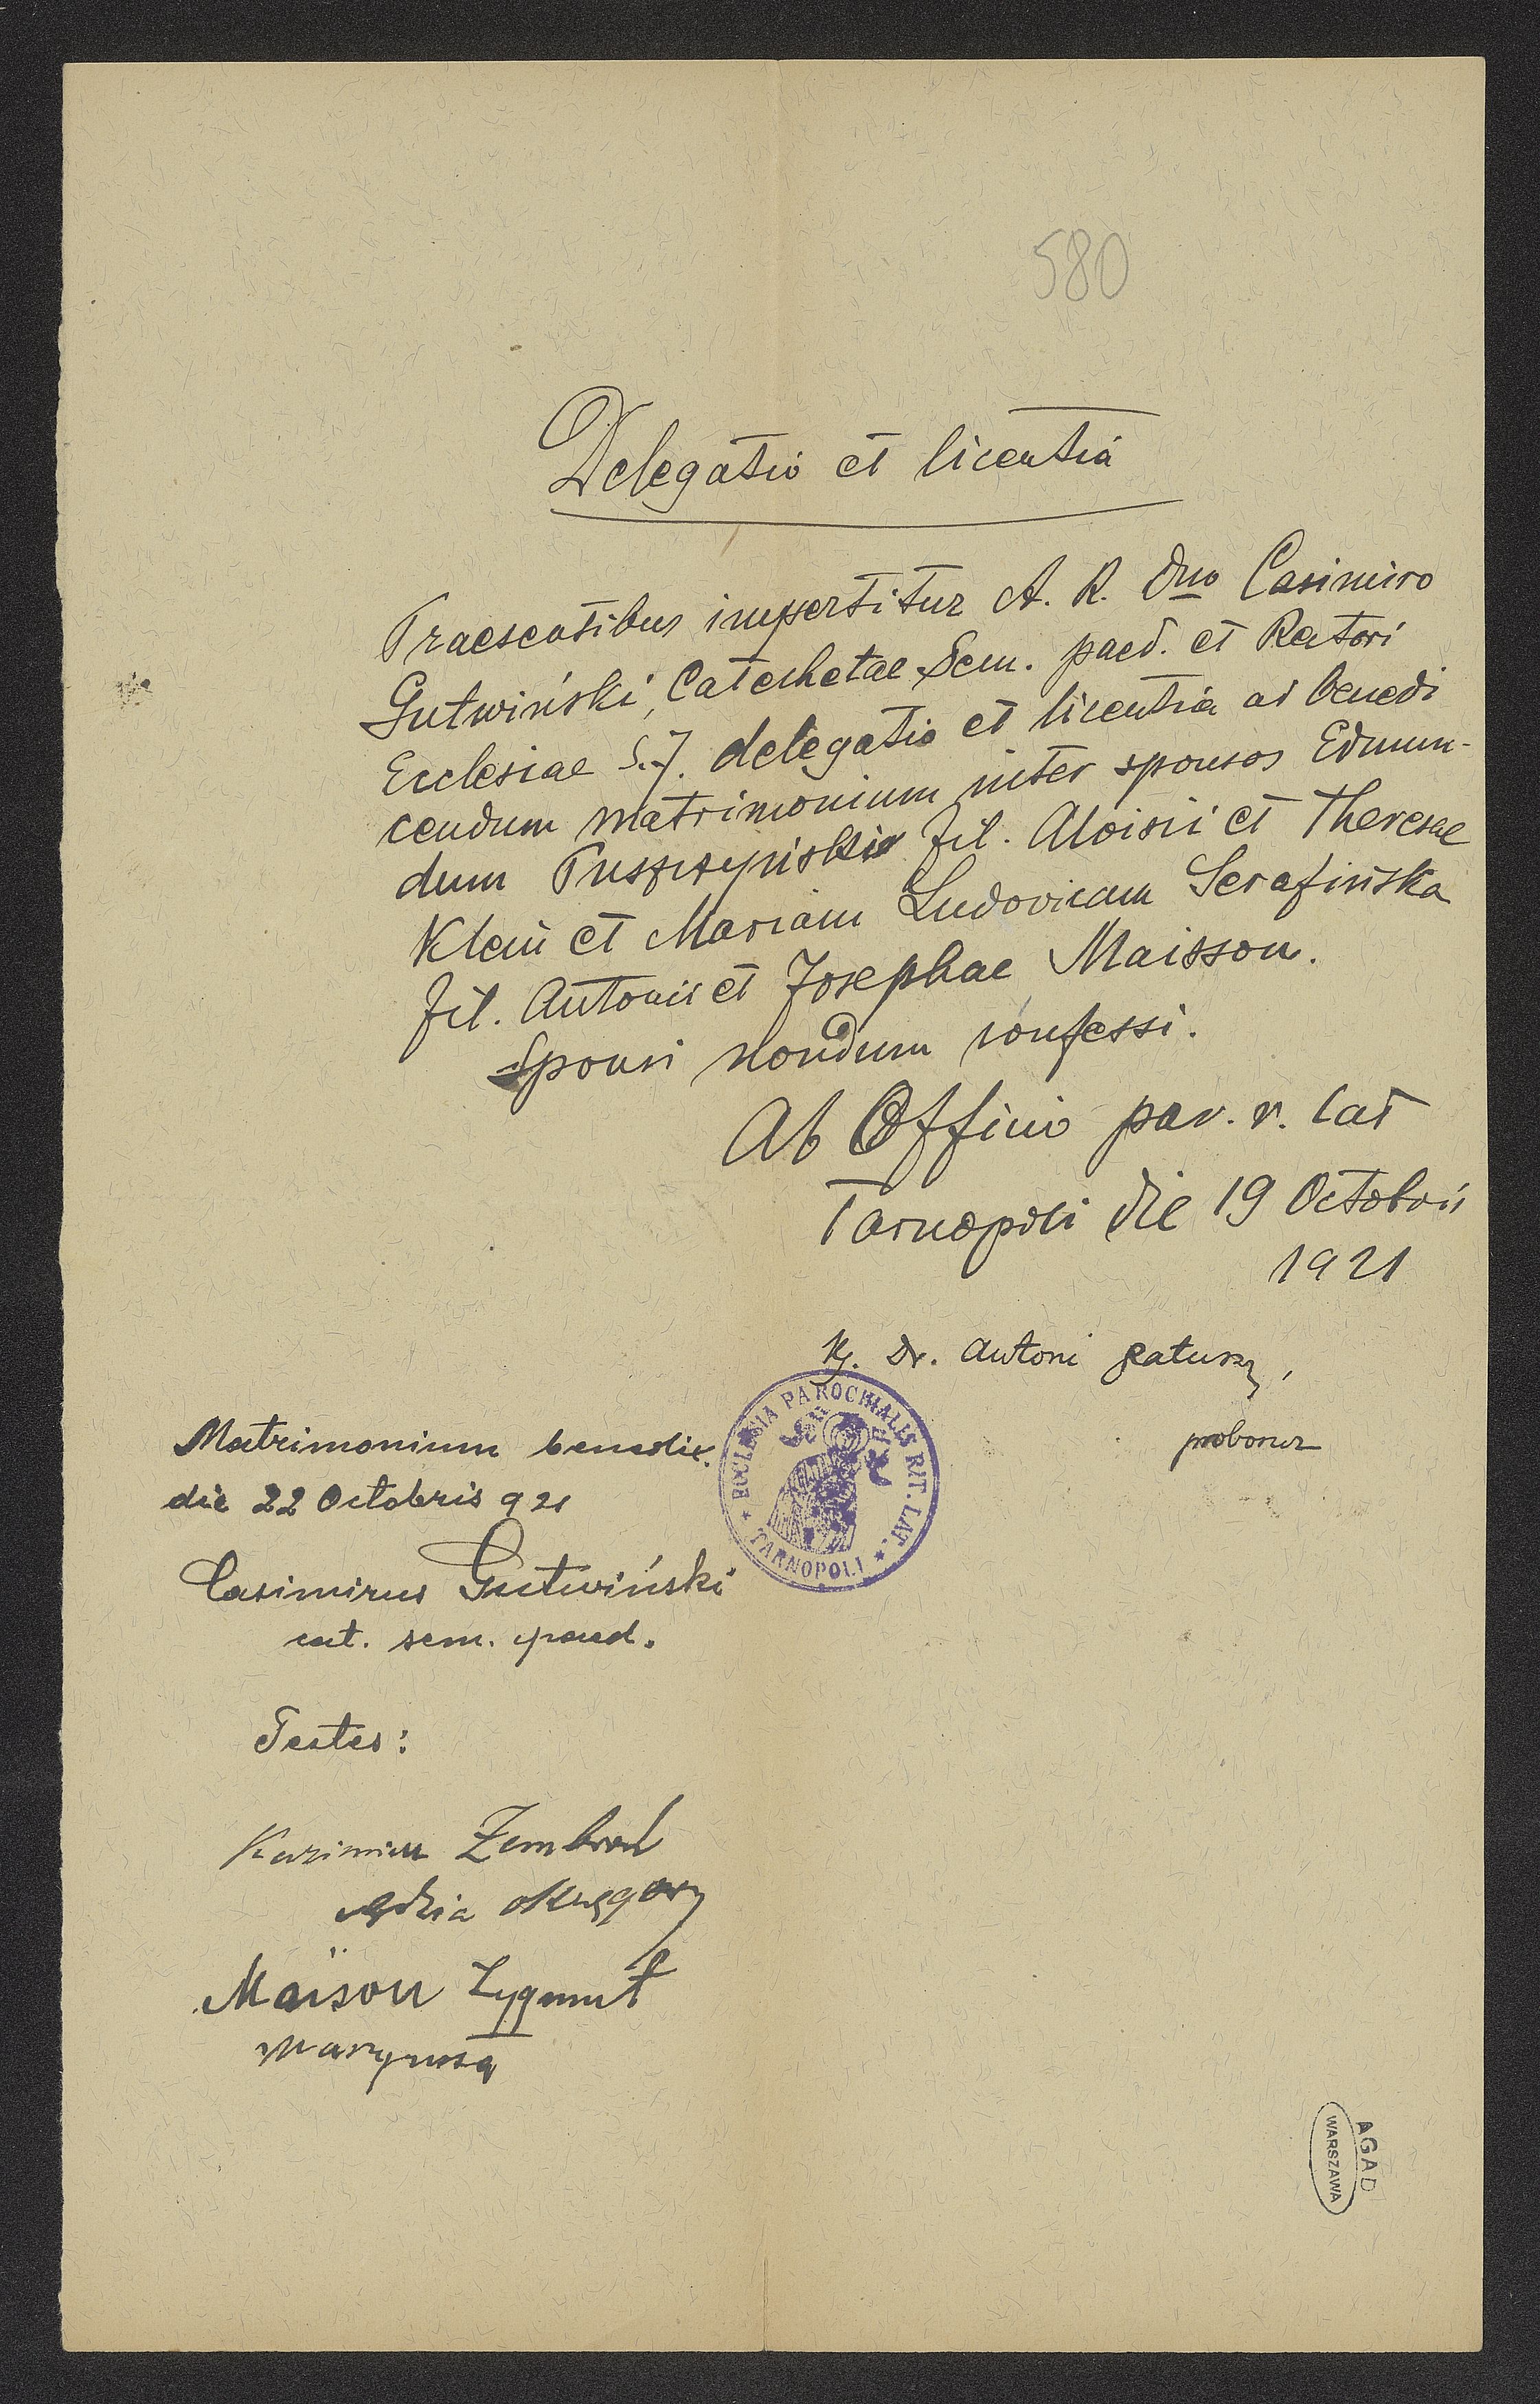 580
Delegatio et licentia
Praesentibus impertitur A. R. Dno Casimiro
Gutwiński, Catechetae Sem. paed. et Rectori
Ecclesiae S.J. delegatio et licentia ad benedi
cendum matrimonium inter sponsos Edmun-
dum fil. Aloisii et Theresae
Klein et Mariam Ludovicam Serafińska
fil. Antonii et Josephae Maisson.
Sponsi nondum confessi.
Ab Officio par. r. lat
Tarnopoli die 19 Octobris
1921
Dr. Antoni
proboszcz
ECCLESIA PAROCHIALIS RIT. LAT.
TARNOPOLI
Matrimonium benedix.
die 22 Octobris 921
Casimirus Gutwiński
cat. sem. paed.
Testes:
Kazimierz
sędzia okręgowy
Maïson Zygmunt
AGAD
WARSZAWA